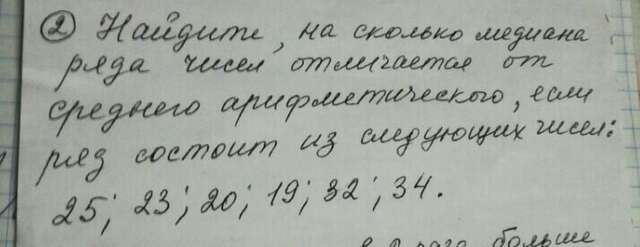 ② Найдите, на сколько медиана
ряда чисел отличается от
среднего арифметического, если
ряд состоит из следующих чисел:
25; 23; 20; 19; 32; 34.
раза больше